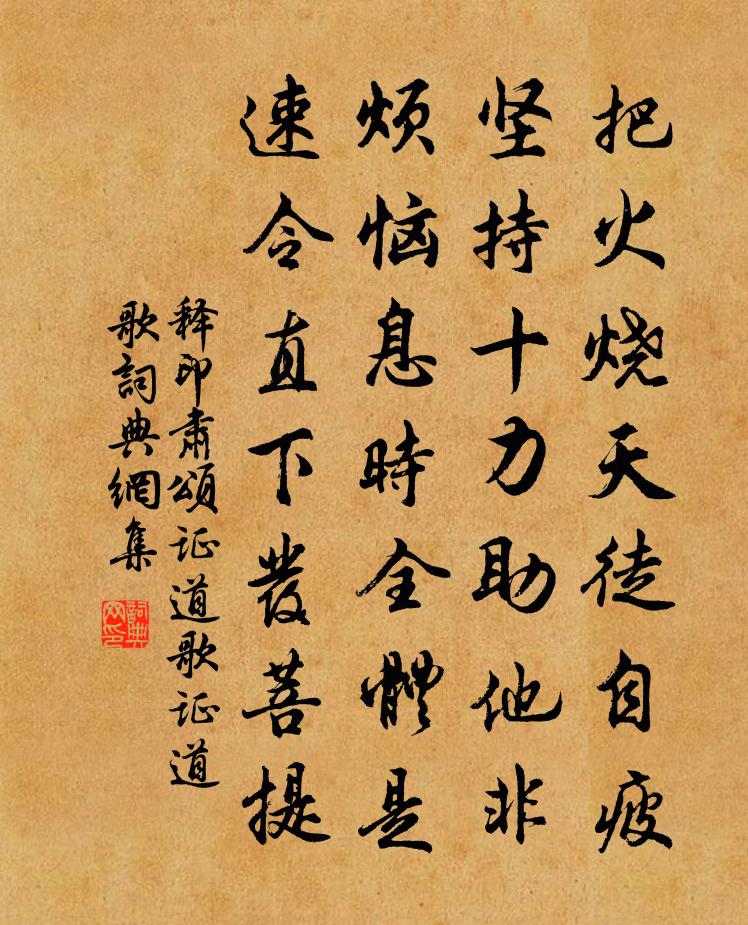 把火烧天徒自疲
坚持十力助他非
烦恼息時全體是
速令直下發菩提
释印肃頌证道歌证道
歌詞典網集
詞典
网印